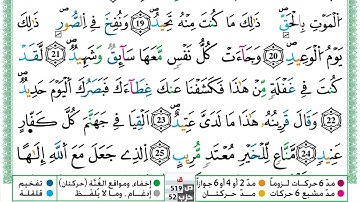 الْمَوْتِ بِالْحَقِّ ۖ ذَٰلِكَ مَا كُنتَ مِنْهُ تَحِيدُ ﴿19﴾ وَنُفِخَ فِي الصُّورِ ۚ ذَٰلِكَ
يَوْمُ الْوَعِيدِ ﴿20﴾ وَجَاءَتْ كُلُّ نَفْسٍ مَّعَهَا سَائِقٌ وَشَهِيدٌ ﴿21﴾ لَّقَدْ
كُنتَ فِي غَفْلَةٍ مِّنْ هَٰذَا فَكَشَفْنَا عَنكَ غِطَاءَكَ فَبَصَرُكَ الْيَوْمَ حَدِيدٌ
﴿22﴾ وَقَالَ قَرِينُهُ هَٰذَا مَا لَدَيَّ عَتِيدٌ ﴿23﴾ أَلْقِيَا فِي جَهَنَّمَ كُلَّ كَفَّارٍ
عَنِيدٍ ﴿24﴾ مَّنَّاعٍ لِّلْخَيْرِ مُعْتَدٍ مُّرِيبٍ ﴿25﴾ الَّذِي جَعَلَ مَعَ اللَّهِ إِلَٰهًا
مدّ 6 حركات لزوماً مدّ 2 أو 4 أو 6 جوازاً إخفاء، ومواقع الغُنَّة (حركتان) تفخيم
مدّ حركتان إدغام، وما لا يُلفَظ قلقلة
ق
ص 519
حزب 52